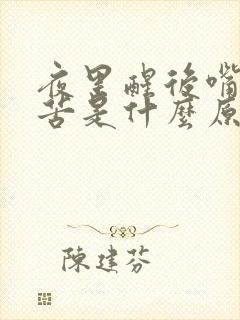 夜里醒後嘴
苦是什麼原
陳建芬